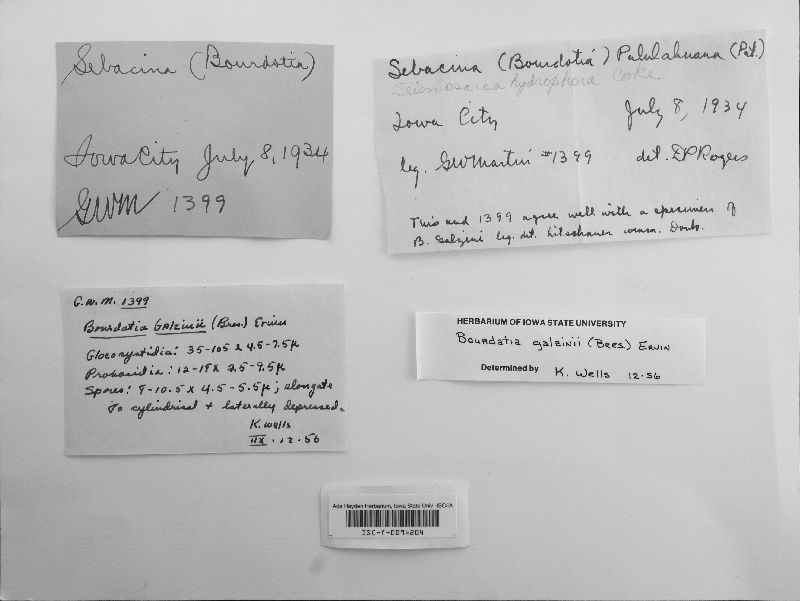 Sebacina (Bourdotia)
Iowa City July 8, 1934
GWM 1399
Sebacina (Bourdotia) Pululahuana (Pat.)
Seismosarca hydrophora Cooke
Iowa City July 8, 1934
leg. GWMartin #1399 det. DPRogers
This and 1399 agree well with a specimen of
B. Galzini leg. det. Litschauer comm. Donk.
G.W.M. 1399
Bourdotia GAlzinii (Bres.) Ervin
Gloeocystidia: 35-105 x 4.5-7.5µ
Probasidia: 12-15 x 7.5-9.5µ
Spores: 8-10.5 x 4.5-5.5µ; elongate
to cylindrical + laterally depressed.
K. Wells
12.56
HERBARIUM OF IOWA STATE UNIVERSITY
Bourdotia galzinii (Bres.) Ervin
Determined by K. Wells 12.56
Ada Hayden Herbarium, Iowa State Univ. ISC/IA
ISC-F-0094204